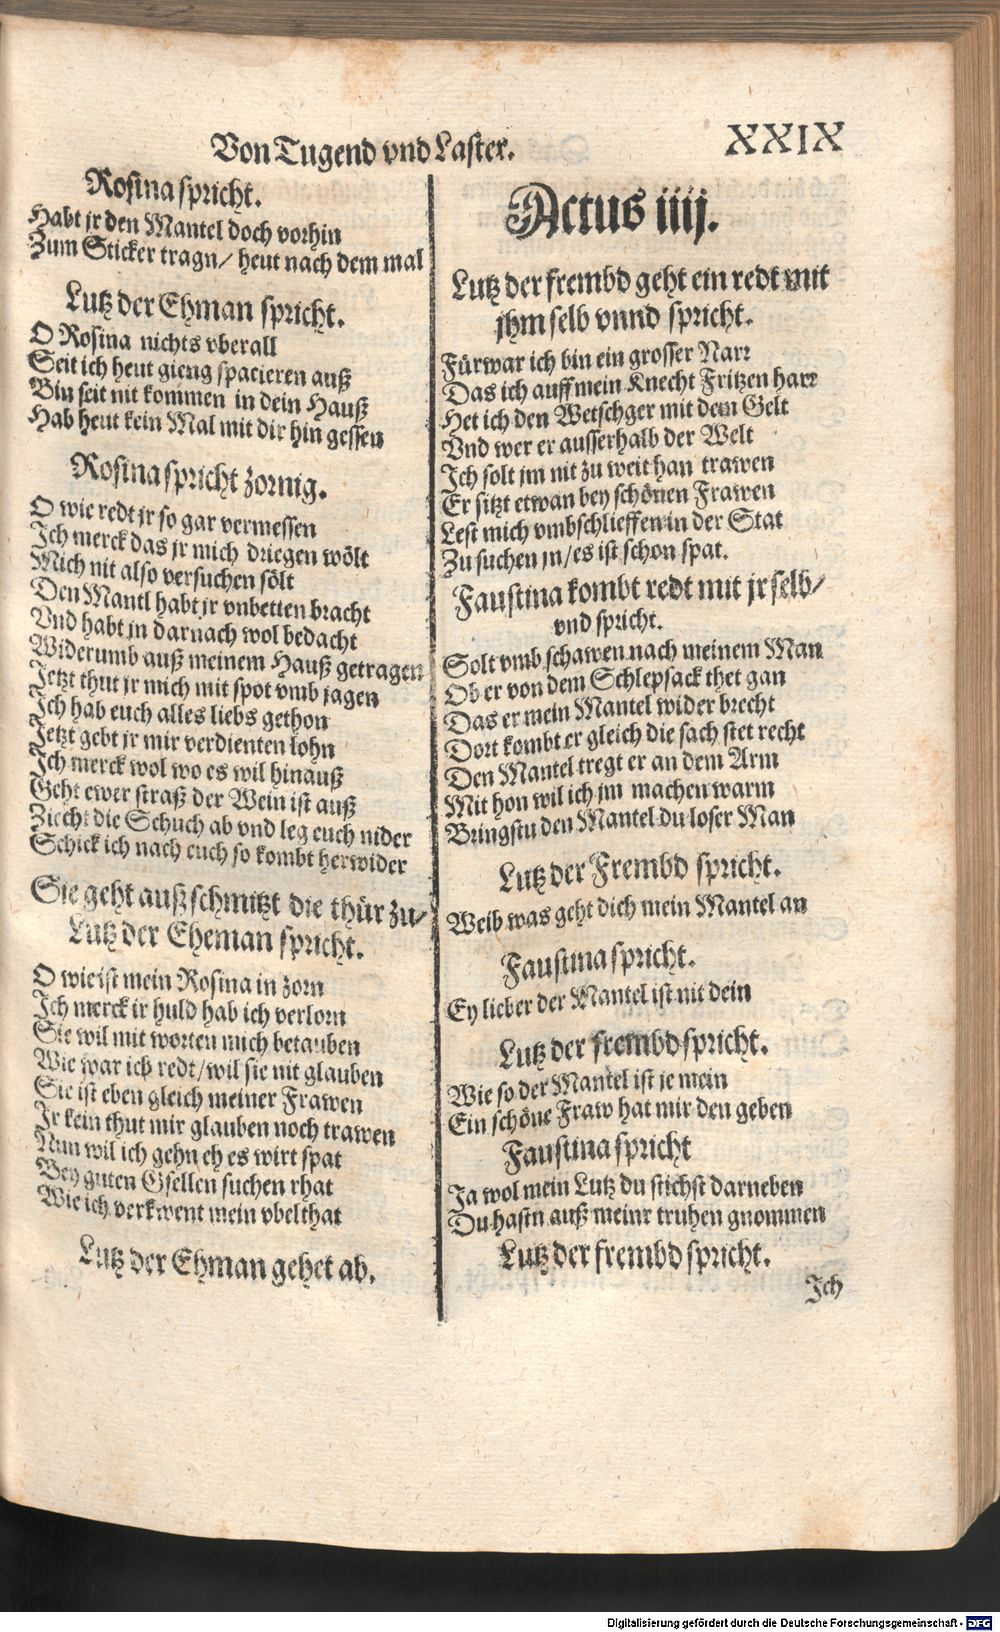 Von Tugend vnd Laster.
XXIX
Rosina spricht.
Habt jr den Mantel doch vorhin
Zum Sticker tragn/ heut nach dem mal
Lutz der Ehman spricht.
O Rosina nichts vberall
Seit ich heut gieng spacieren auß
Bin seit nit kommen in dein Hauß
Hab heut kein Mal mit dir hin gessen
Rosina spricht zornig.
O wie redt jr so gar vermessen
Ich merck das jr mich driegen wölt
Mich nit also versuchen sölt
Den Mantl habt jr vnbetten bracht
Vnd habt jn darnach wol bedacht
Widerumb auß meinem Hauß getragen
Jetzt thut jr mich mit spot vmb jagen
Ich hab euch alles liebs gethon
Jetzt gebt jr mir verdienten lohn
Ich merck wol wo es wil hinauß
Geht ewer straß der Wein ist auß
Ziecht die Schuch ab vnd leg euch nider
Schick ich nach euch so kombt herwider
Sie geht auß schmitzt die thür zu/
Lutz der Eheman spricht.
O wie ist mein Rosina in zorn
Ich merck ir huld hab ich verlorn
Sie wil mit worten mich betauben
Wie war ich redt/wil sie nit glauben
Sie ist eben gleich meiner Frawen
Jr kein thut mir glauben noch trawen
Nun wil ich gehn eh es wirt spat
Bey guten Gsellen suchen rhat
Wie ich verkwent mein vbelthat
Lutz der Ehman gehet ab.
Actus iiij.
Lutz der frembd geht ein redt mit
jhm selb vnnd spricht.
Fürwar ich bin ein grosser Narr
Das ich auff mein Knecht Fritzen harr
Het ich den Wetschger mit dem Gelt
Vnd wer er ausserhalb der Welt
Ich solt jm nit zu weit han trawen
Er sitzt etwan bey schönen Frawen
Lest mich vmbschlieffen in der Stat
Zu suchen jn/es ist schon spat.
Faustina kombt redt mit jr selb/
vnd spricht.
Solt vmb schawen nach meinem Man
Ob er von dem Schlepsack thet gan
Das er mein Mantel wider brecht
Dort kombt er gleich die sach stet recht
Den Mantel tregt er an dem Arm
Mit hon wil ich jm machen warm
Bringstu den Mantel du loser Man
Lutz der Frembd spricht.
Weib was geht dich mein Mantel an
Faustina spricht.
Ey lieber der Mantel ist nit dein
Lutz der frembd spricht.
Wie so der Mantel ist je mein
Ein schöne Fraw hat mir den geben
Faustina spricht
Ja wol mein Lutz du stichst darneben
Du hastn auß meinr truhen gnommen
Lutz der frembd spricht.
Ich
Digitalisierung gefördert durch die Deutsche Forschungsgemeinschaft - DFG